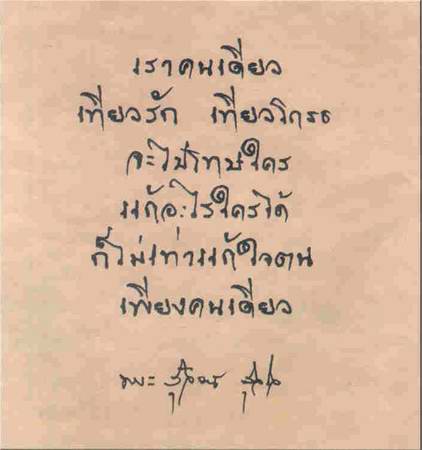 เราคนเดียว
เที่ยวรัก เที่ยวโกรธ
จะไปโทษใคร
แก้อะไรใครได้
ก็ไม่เท่าแก้ใจตน
เพียงคนเดียว
พระ